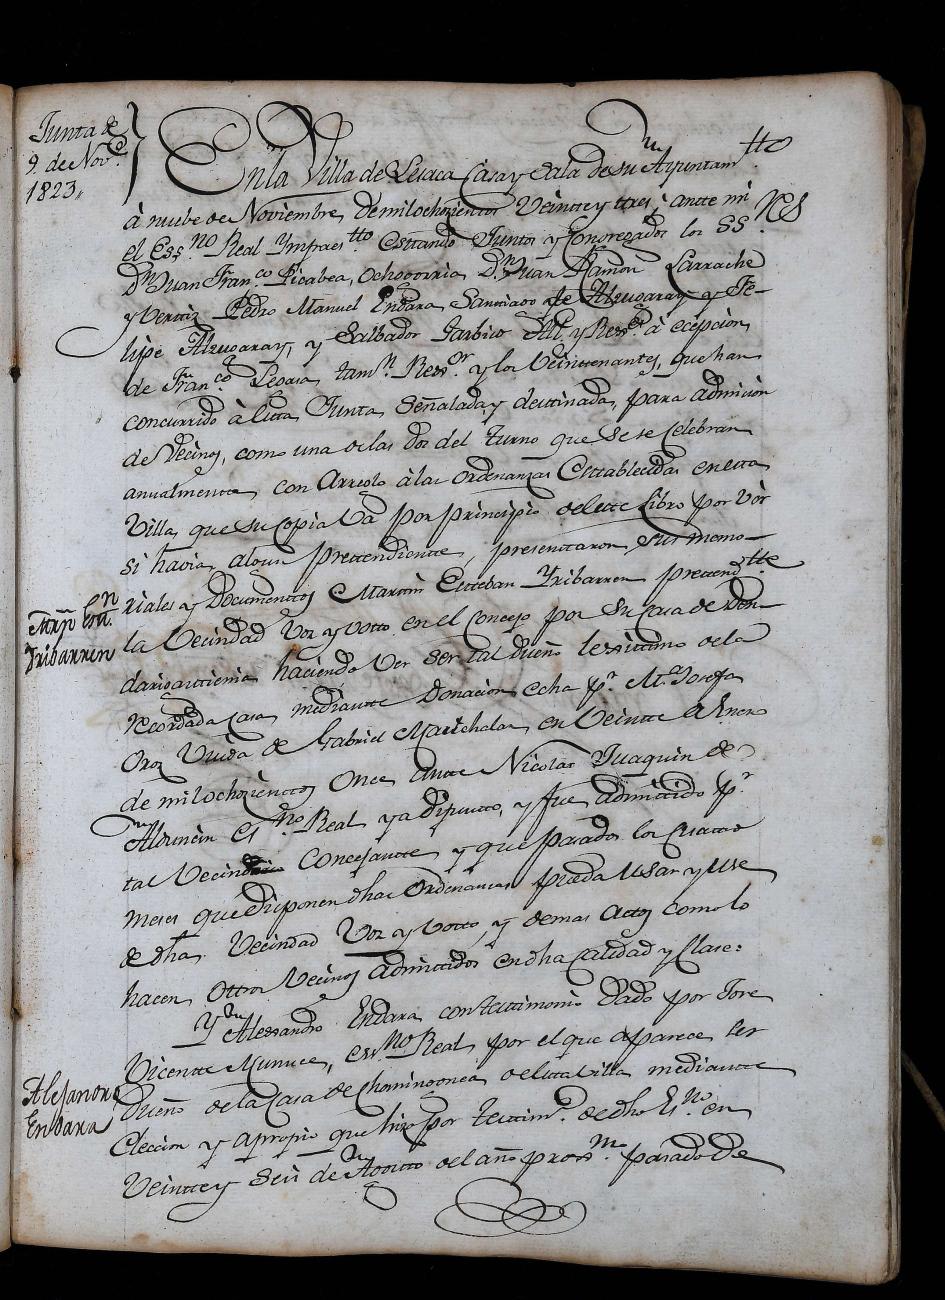 Junta de
9. de Nov.e
1823,,
En la Villa de Lesaca Casa y Sala de su Ayuntam.tto
à nuebe de Noviembre de mil ochozientos Veintte y tres; antte mi
el Ess.no Real Ynfraes.tto esttando Juntos y Congregados los SS.res
D.n Juan Fran.co Picabea, Ochotorria D.n Juan Ramon Larrache
y Vertiz Pedro Manuel Endara, Santtiago de Alzugaray y Fe-
lipe Alzugaray, y Salbador Iarbico All. y Rexx.s à ecepcion
de Fran.co Lesaca tam.n Rexx.or y los Veinttenantes, que han
concurrido à Estta Junta Señalada y desttinada, para admicion
de Vecinos, como una de las dos del turno que se se Celebran
anualmente, con Arreglo à las ordenanzas Esttablecidas en estta
Villa, que su Copia Va por principio de estte Libro por Vèr
si havia algun prettendientte, presenttaron sus memo-
riales y Documenttos Marttin Estteban Yribarren prettend.tte
Mrn. Estn.
Yribarren
la Vecindad Voz y Votto en el Concejo por su Casa de Den-
dariarttienia haciendo Ver ser tal dueño lexitimo de la
recordada Casa mediantte Donacion echa p.r M.a Josefa
Oroz Viuda de Gabriel Marichalar en Veintte de Enero
de mil ochozienttos Once antte Nicolas Juaquin de
Alduncin Es.no Real ya difuntto, y fue admittido p.r
tal Vecino Concejantte y que pasados los Cuattro
meses que disponen dhas Ordenanzas pueda Usar y Use
de dha Vecindad Voz y Votto, y demas Acttos como lo
hacen Ottros Vecinos admittidos en dha Calidad y Clase:
Y Alessandro Endara con testtimonio Dado por Jose
Vicentte Munuce, ess.no Real por el que aparece ser
Alejandro
Endara
Dueño de la Casa de Chomingonea de estta Villa mediantte
Eleccion y apropio que hizo por testtim.o de dho Es.no en
Veintte y Seis de Agostto del año prox.mo pasado de